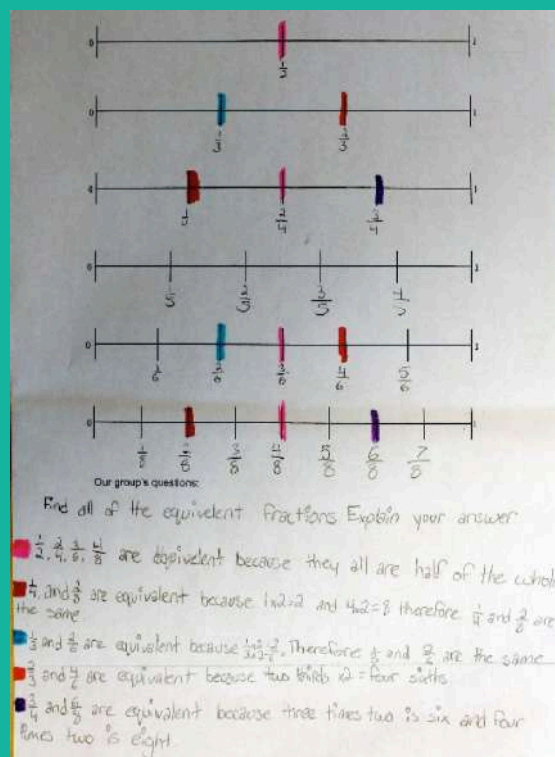 0 1
1/2
0 1
1/3 2/3
0 1
1/4 2/4 3/4
0 1
1/5 2/5 3/5 4/5
0 1
1/6 2/6 3/6 4/6 5/6
0 1
1/8 2/8 3/8 4/8 5/8 6/8 7/8
Our group's questions:
Find all of the equivelent fractions Explain your answer
1/2, 2/4, 3/6, 4/8 are eqivelent because they all are half of the whole
1/4, and 2/8 are equivalent because 1x2=2 and 4x2=8 therefore 1/4 and 2/8 are
the same
1/3 and 2/6 are equivalent because Therefore 1/3 and 2/6 are the same
2/3 and 4/6 are equivalent because two thirds x2 = four sixths
3/4 and 6/8 are equivalent because three times two is six and four
times two is eight